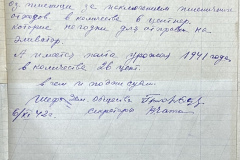 оз. пшеница, за исключением пшеничных
отходов в количестве 6 центнер.
которые не годные для отправки на
элеватор.
А имеется тоже урожая 1941 года,
в количестве 26 цент.
в чем и подписуемся
общества
6/XI 42 г. Секретарь